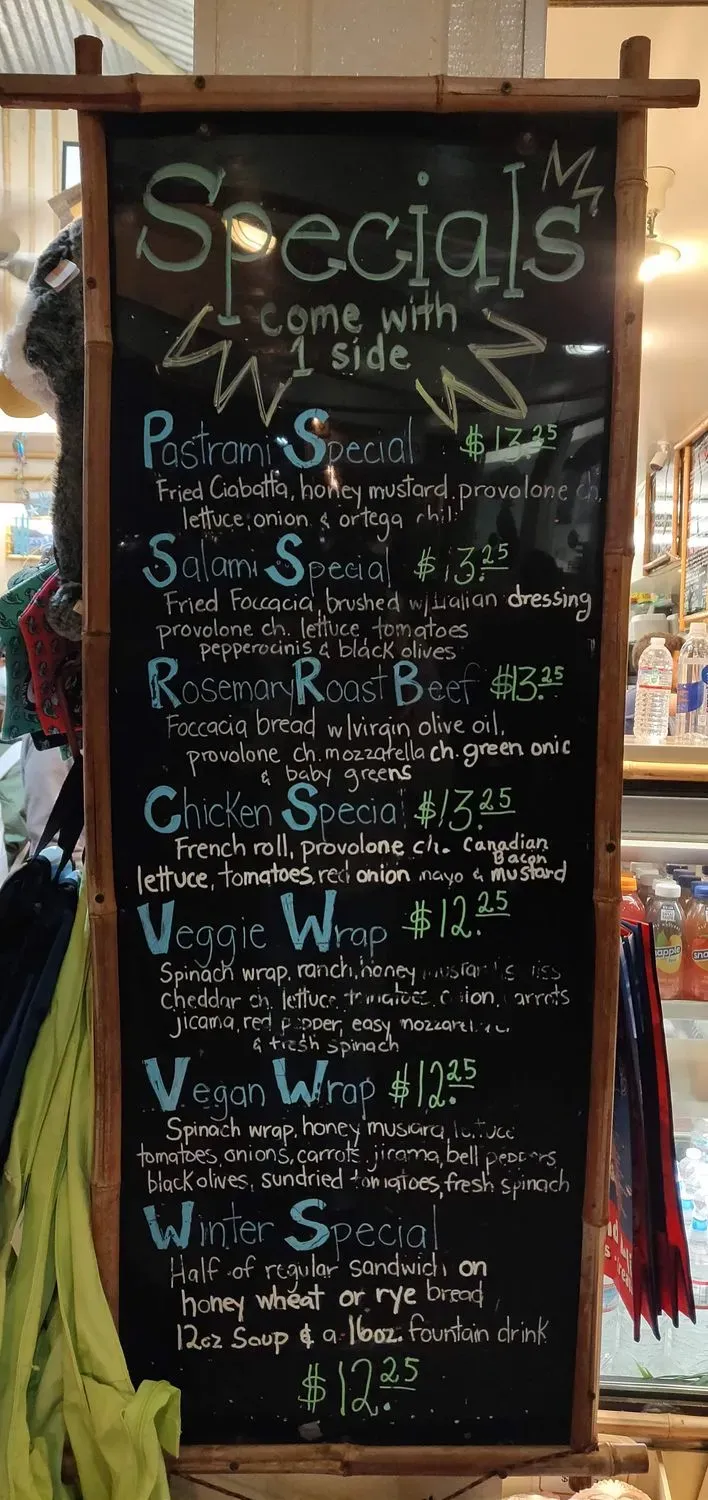 Specials
come with
1 side
Pastrami Special $13.25
Fried Ciabatta, honey mustard, provolone ch.
lettuce, onion & ortega
Salami Special $13.25
Fried Foccacia, brushed w/Italian dressing
provolone ch. lettuce, tomatoes
pepperocinis & black olives
Rosemary Roast Beef $13.25
Foccacia bread w/virgin olive oil,
provolone ch. mozzarella ch. green onic
& baby greens
Chicken Special $13.25
French roll, provolone ch. Canadian
Bacon
lettuce, tomatoes, red onion mayo & mustard
Veggie Wrap $12.25
Spinach wrap, ranch, honey
cheddar ch. lettuce, tomatoes, onion, carrots
jicama, red pepper, easy
& fresh spinach
Vegan Wrap $12.25
Spinach wrap, honey mustard, lettuce
tomatoes, onions, carrots, jicama, bell peppers,
black olives, sundried tomatoes, fresh spinach
Winter Special
Half of regular sandwich on
honey wheat or rye bread,
12oz Soup & a 16oz. fountain drink
$12.25